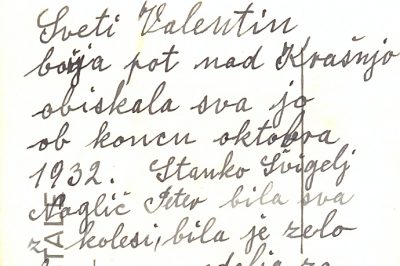 Sveti Valentin
božja pot nad Krašnjo
obiskala sva jo
ob koncu oktobra
1932. Stanko Švigelj
Naglič Peter bila sva
z kolesi, bila je zelo